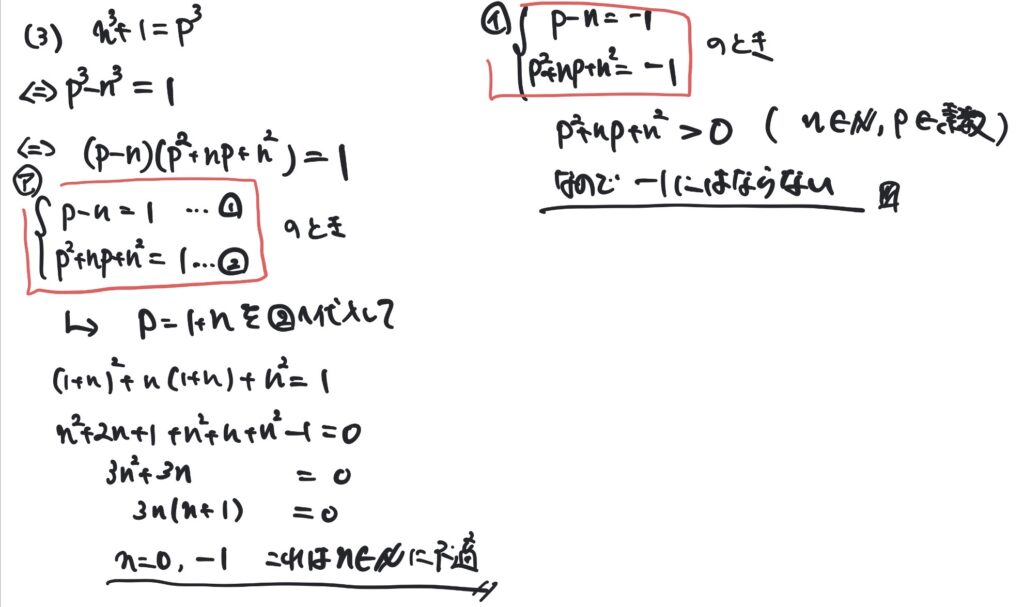 (3) n³+1=p³
⇔ p³-n³=1
⇔ (p-n)(p²+np+n²)=1
㋐
{ p-n=1 …①
p²+np+n²=1…② のとき
↳ p=1+nを②へ代入して
(1+n)²+n(1+n)+n²=1
n²+2n+1+n²+n+n²-1=0
3n²+3n =0
3n(n+1) =0
n=0, -1 これはn∈ℕに不適
㋑ { p-n=-1
p²+np+n²=-1 のとき
p²+np+n²>0 (n∈ℕ, p∈素数)
なので -1にはならない